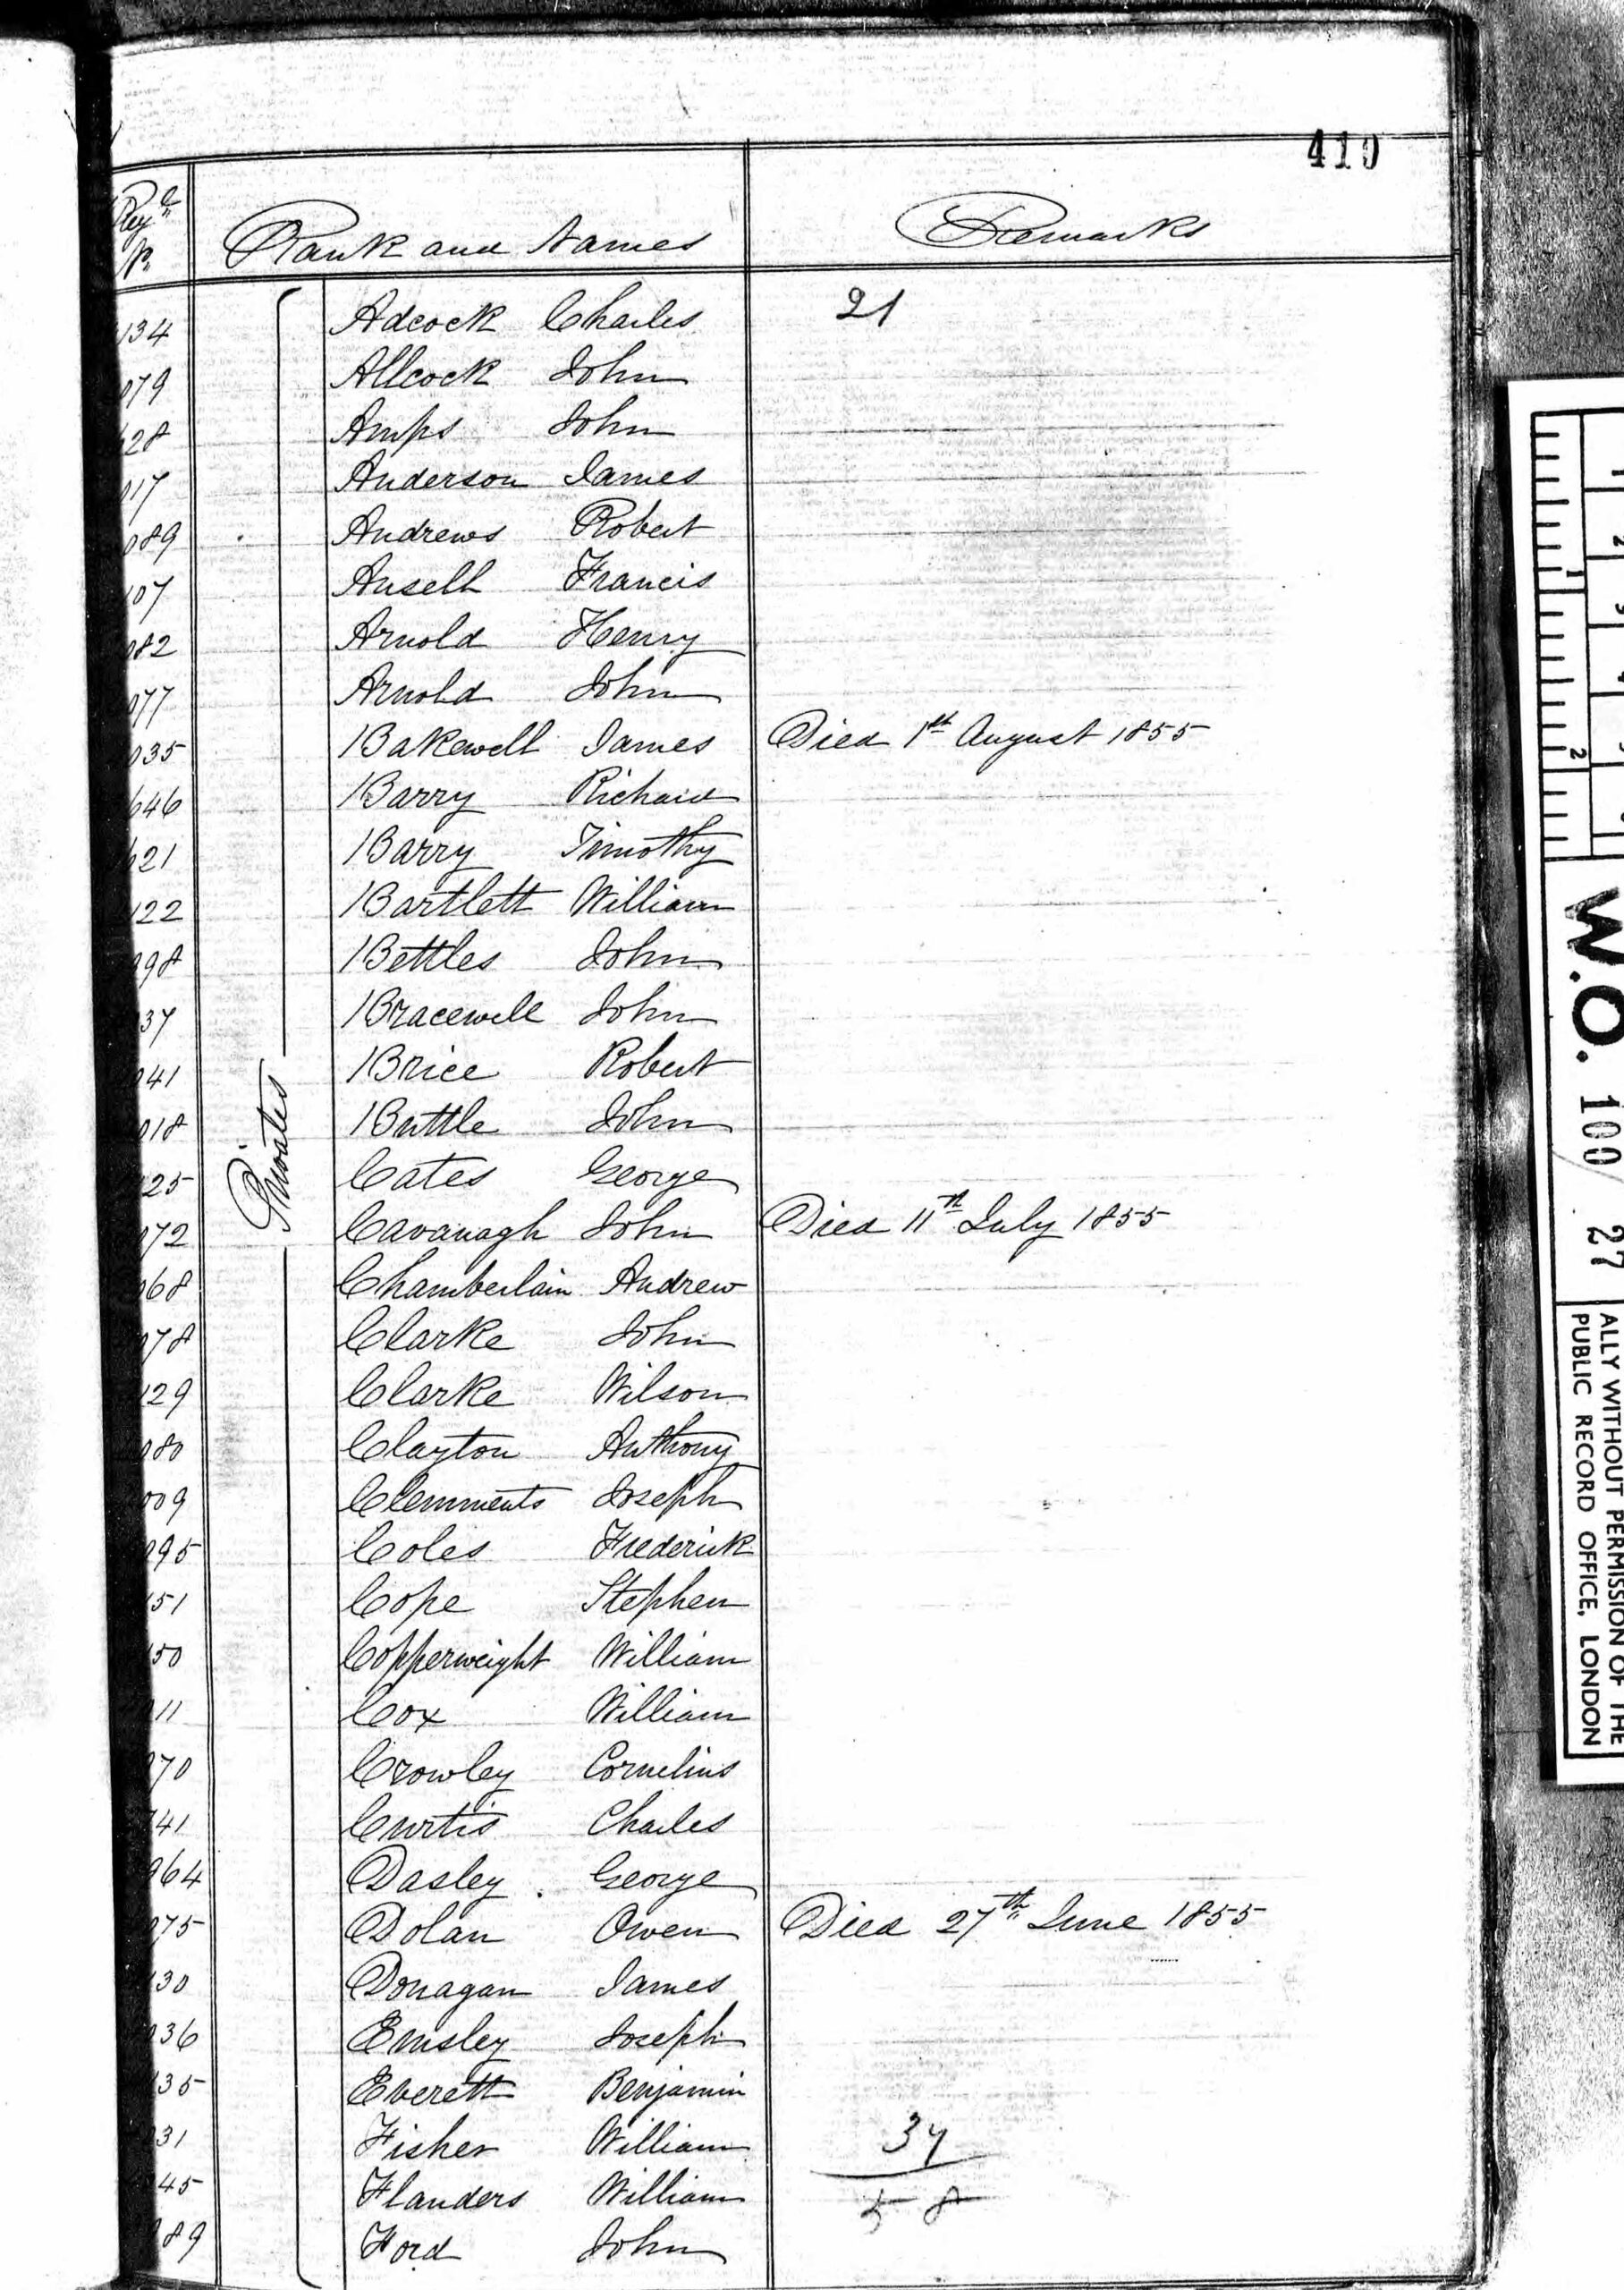 410
Reg.l No. Rank and Names Remarks
134 Adcock Charles 21
079 Allcock John
628 Amps John
017 Anderson James
089 Andrews Robert
107 Ansell Francis
082 Arnold Henry
077 Arnold John
035 Bakewell James Died 1st August 1855
646 Barry Richard
621 Barry Timothy
122 Bartlett William
998 Bettles John
37 Bracewell John
041 Brice Robert
018 Buttle John
Privates
25 Cates George
072 Cavanagh John Died 11th July 1855
068 Chamberlain Andrew
078 Clarke John
129 Clarke Wilson
080 Clayton Anthony
009 Clemments Joseph
095 Coles Frederick
151 Cope Stephen
150 Copperweight William
11 Cox William
070 Crowley Cornelius
41 Curtis Charles
964 Dasley George
075 Dolan Owen Died 27th June 1855
30 Donagan James
036 Emsley Joseph
35 Everett Benjamin
31 Fisher William 37
45 Flanders William 58
89 Ford John
1 2
W.O. 100/27
ALLY WITHOUT PERMISSION OF THE
PUBLIC RECORD OFFICE, LONDON